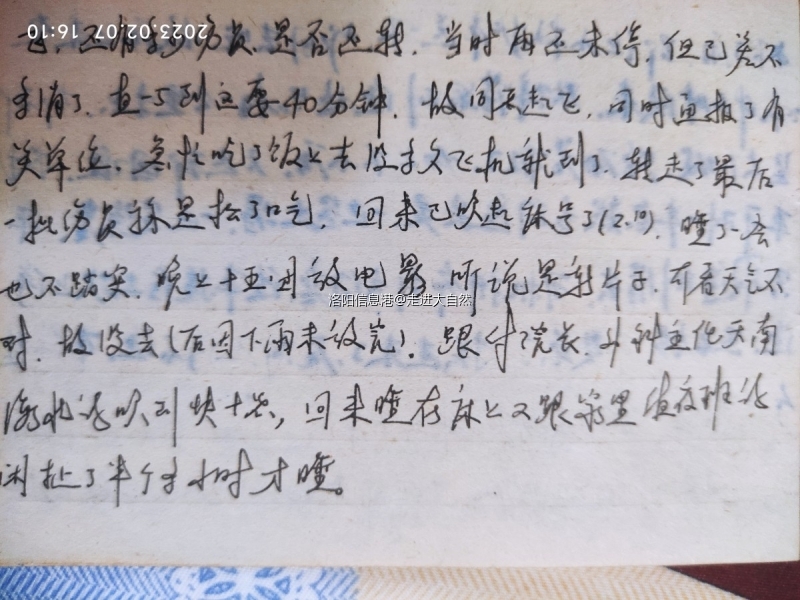 2023.02.07 16:10
还有多少伤员,是否还转。当时雨还未停,但已差不
多消了。直一5到这要40分钟,故同意起飞,同时通报了有
关单位。急忙吃了饭上去没多久飞机就到了。转走了最后
一批伤员称是松了口气,回来已吹起床号了(2.10)。睡了一会
也不踏实。晚上十五团放电影,听说是新片子,可看天气不
对,故没去(后因下雨未放完)。跟付院长、外科主任天南
海北说吹到快十点,回来睡在床上又跟家里值夜班
闲扯了半个多小时才睡。
洛阳信息港@走进大自然